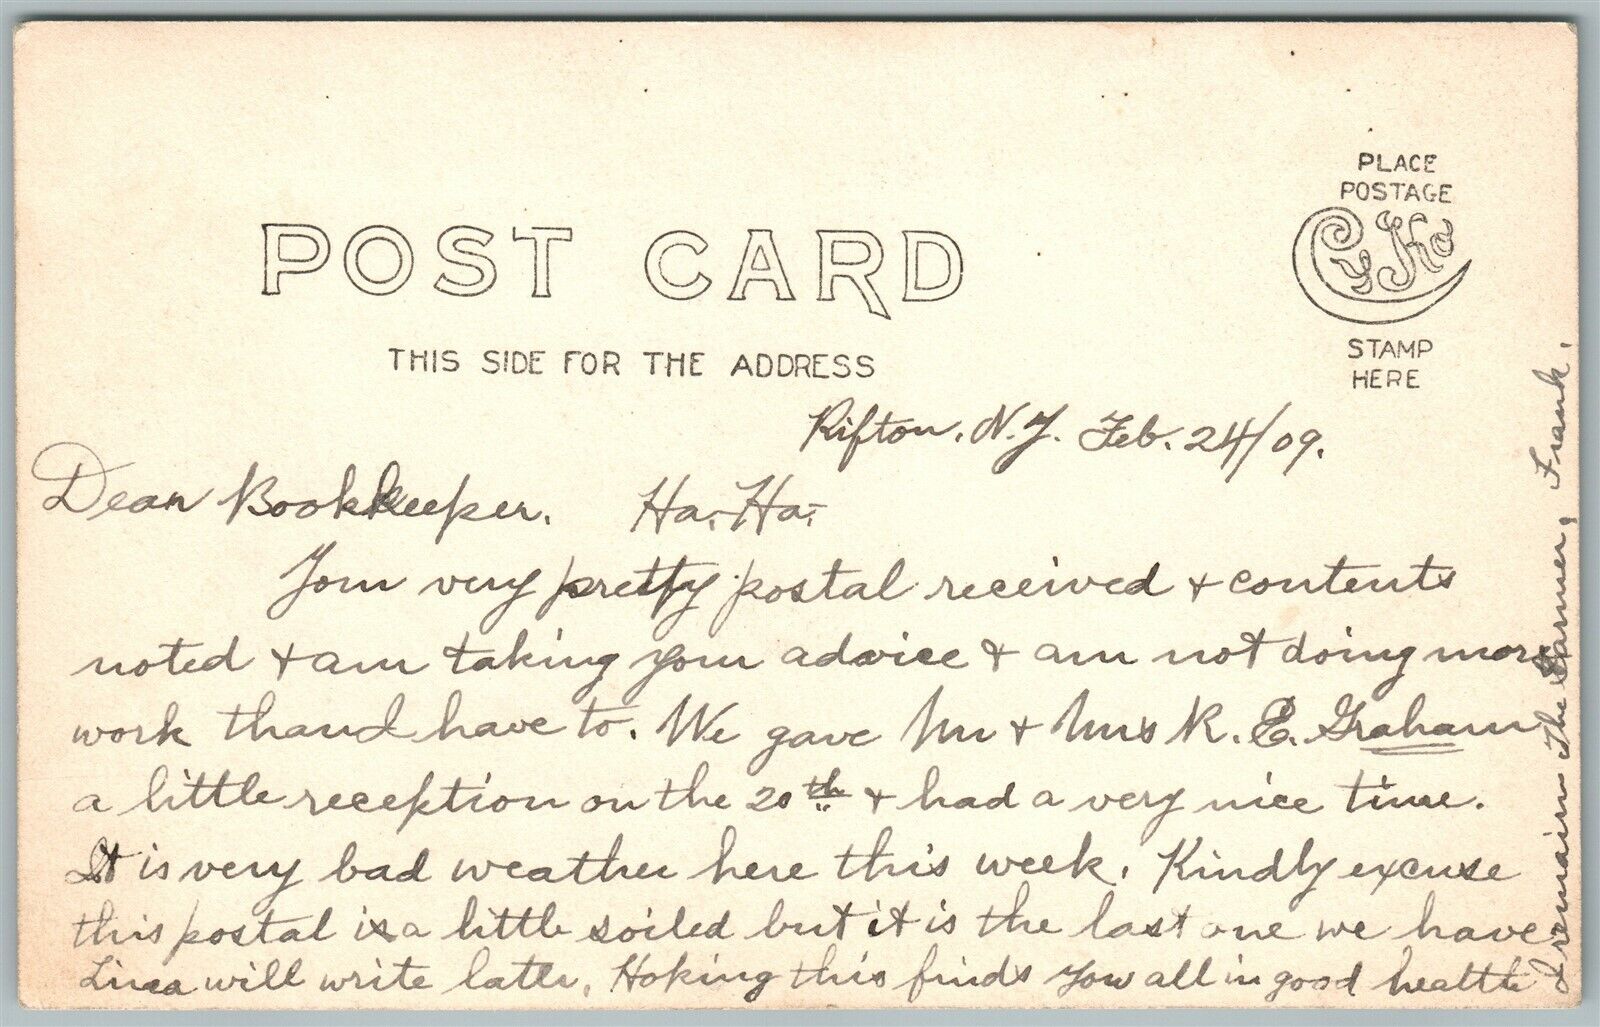 PLACE
POSTAGE
CyKo
STAMP
HERE
POST CARD
THIS SIDE FOR THE ADDRESS
Rifton, N.Y. Feb. 24/09.
Dear Bookkeeper. Ha,-Ha,-
Your very pretty postal received & contents
noted & am taking your advice & am not doing more
work than I have to. We gave Mr & Mrs R. E. Graham
a little reception on the 20th & had a very nice time.
It is very bad weather here this week. Kindly excuse
this postal is a little soiled but it is the last one we have
will write later. Hoping this finds you all in good health
I remain The Farmer, Frank.